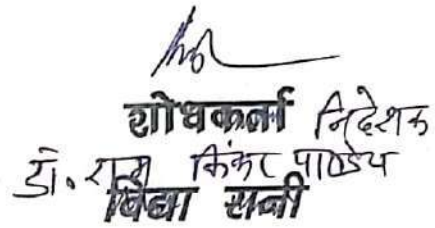 शोधकर्ता निदेशक
डॉ. राम किंकर पाण्डेय
विद्या